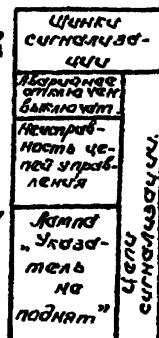 Шинки
сигнализа-
ции
Аварийное
отключен.
выключат.
Неисправ-
ность це-
пей управ-
ления
Лампа
„Указа-
тель
не
поднят"
Цепи
сигнализации.